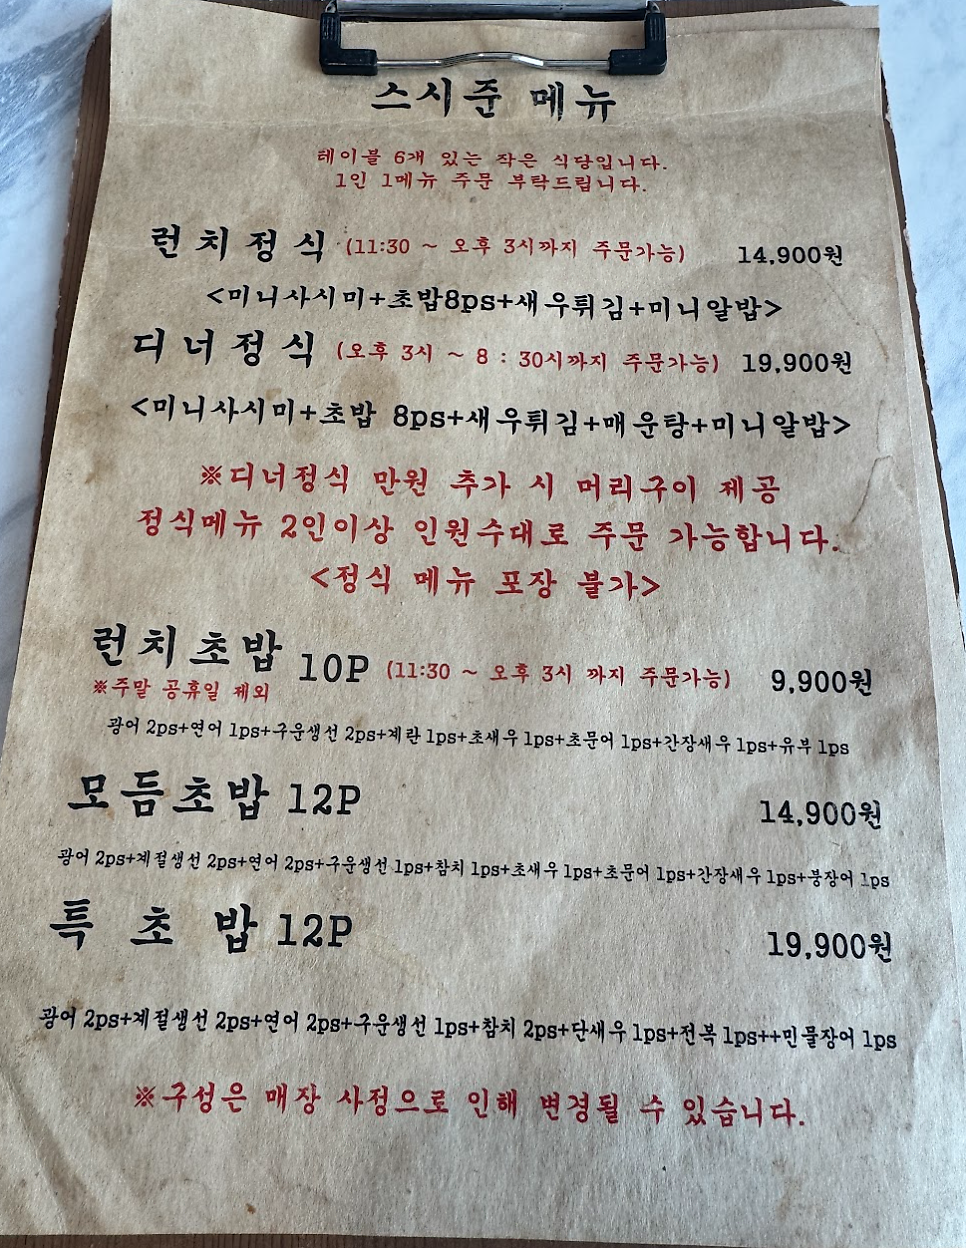 스시준 메뉴
테이블 6개 있는 작은 식당입니다.
1인 1메뉴 주문 부탁드립니다.
런치정식 (11:30 ~ 오후 3시까지 주문가능) 14,900원
<미니사시미+초밥8ps+새우튀김+미니알밥>
디너정식 (오후 3시 ~ 8 : 30시까지 주문가능) 19,900원
<미니사시미+초밥 8ps+새우튀김+매운탕+미니알밥>
※디너정식 만원 추가 시 머리구이 제공
정식메뉴 2인이상 인원수대로 주문 가능합니다.
<정식 메뉴 포장 불가>
런치초밥 10P (11:30 ~ 오후 3시 까지 주문가능) 9,900원
※주말 공휴일 제외
광어 2ps+연어 1ps+구운생선 2ps+계란 1ps+초새우 1ps+초문어 1ps+간장새우 1ps+유부 1ps
모듬초밥 12P 14,900원
광어 2ps+계절생선 2ps+연어 2ps+구운생선 1ps+참치 1ps+초새우 1ps+초문어 1ps+간장새우 1ps+붕장어 1ps
특 초 밥 12P 19,900원
광어 2ps+계절생선 2ps+연어 2ps+구운생선 1ps+참치 2ps+단새우 1ps+전복 1ps++민물장어 1ps
※구성은 매장 사정으로 인해 변경될 수 있습니다.